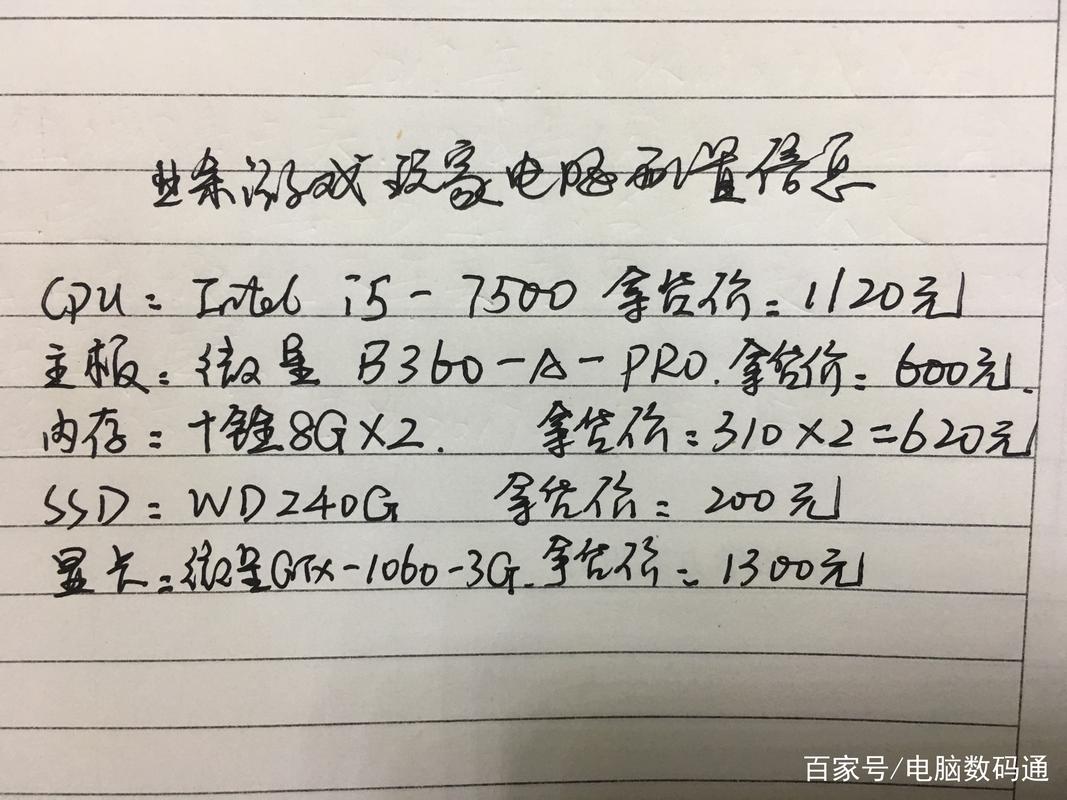 某游戏玩家电脑配置信息
CPU：Intel i5-7500 拿货价：1120元
主板：微星 B360-A-PRO. 拿货价：600元.
内存：十铨8G×2. 拿货价：310×2=620元
SSD：WD240G 拿货价：200元
显卡：微星GTX-1060-3G. 拿货价：1300元
百家号/电脑数码通